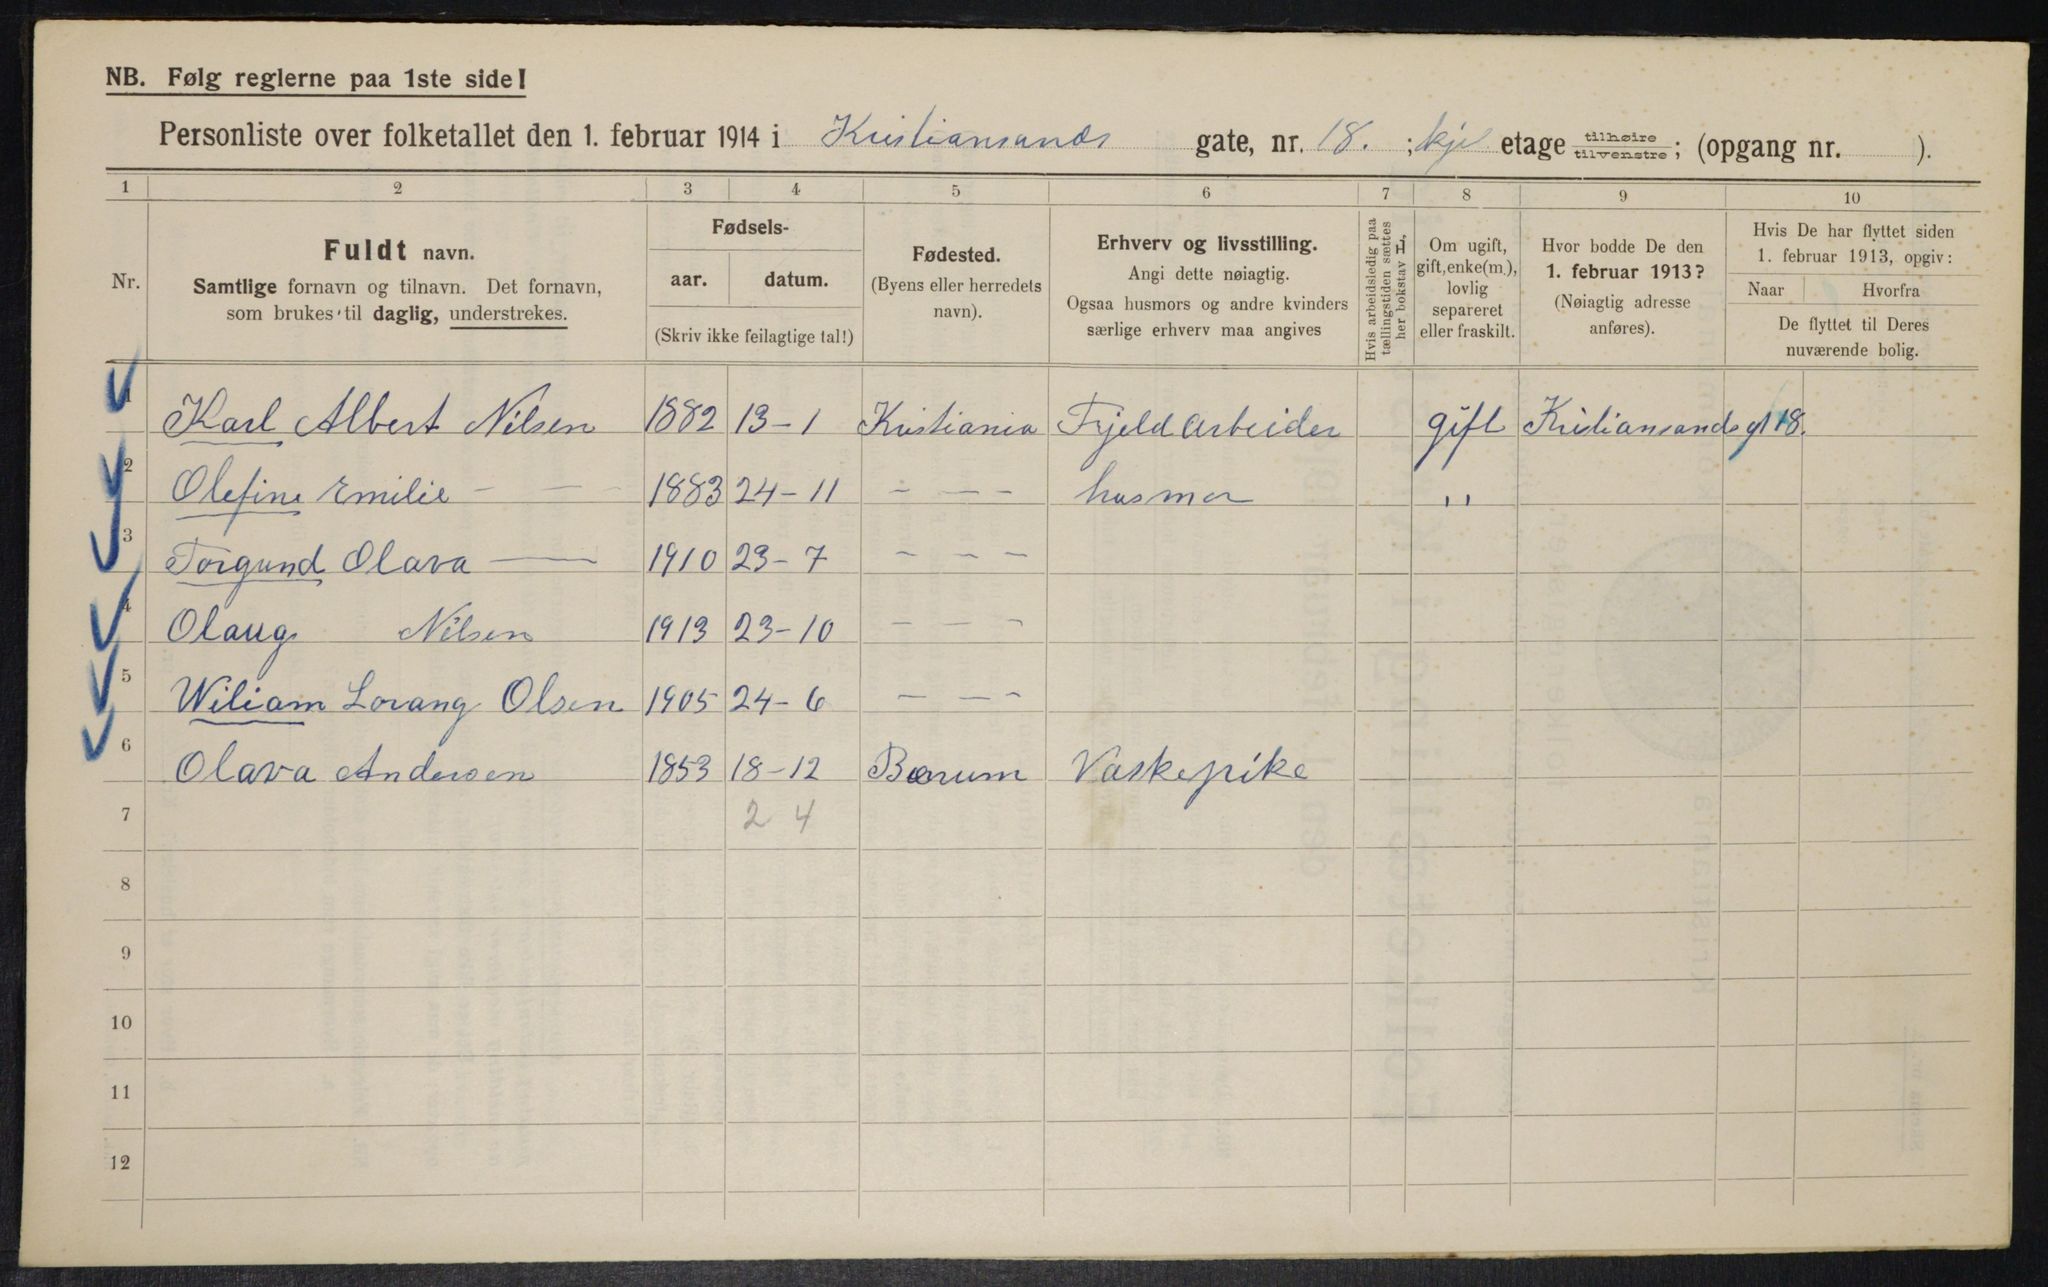 NB. Følg reglerne paa 1ste side!
Personliste over folketallet den 1. februar 1914 i Kristiansands gate, nr. 18. ; kjel etage tilhøire tilvenstre; (opgang nr. ).
1 2 3 4 5 6 7 8 9 10
Nr.
Fuldt navn.
Samtlige fornavn og tilnavn. Det fornavn,
som brukes til daglig, understrekes.
Fødsels-
aar. datum.
(Skriv ikke feilagtige tal!)
Fødested.
(Byens eller herredets
navn).
Erhverv og livsstilling.
Angi dette nøiagtig.
Ogsaa husmors og andre kvinders
særlige erhverv maa angives
Hvis arbeidsledig paa
tællingstiden sættes
her bokstav H,
Om ugift,
gift, enke(m.),
lovlig
separeret
eller fraskilt.
Hvor bodde De den
1. februar 1913?
(Nøiagtig adresse
anføres).
Hvis De har flyttet siden
1. februar 1913, opgiv:
Naar Hvorfra
De flyttet til Deres
nuværende bolig.
1 Karl Albert Nilsen 1882 13-1 Kristiania Fjeldarbeider gift Kristiansands gt 18.
2 Olefine Emilie — — 1883 24-11 — — — husmor "
3 Torgund Olava — 1910 23-7 — — —
4 Olaug Nilsen 1913 23-10 — — —
5 Wiliam Lorang Olsen 1905 24-6 — — —
6 Olava Andersen 1853 18-12 Bærum Vaskepike
7 2 4
8
9
10
11
12